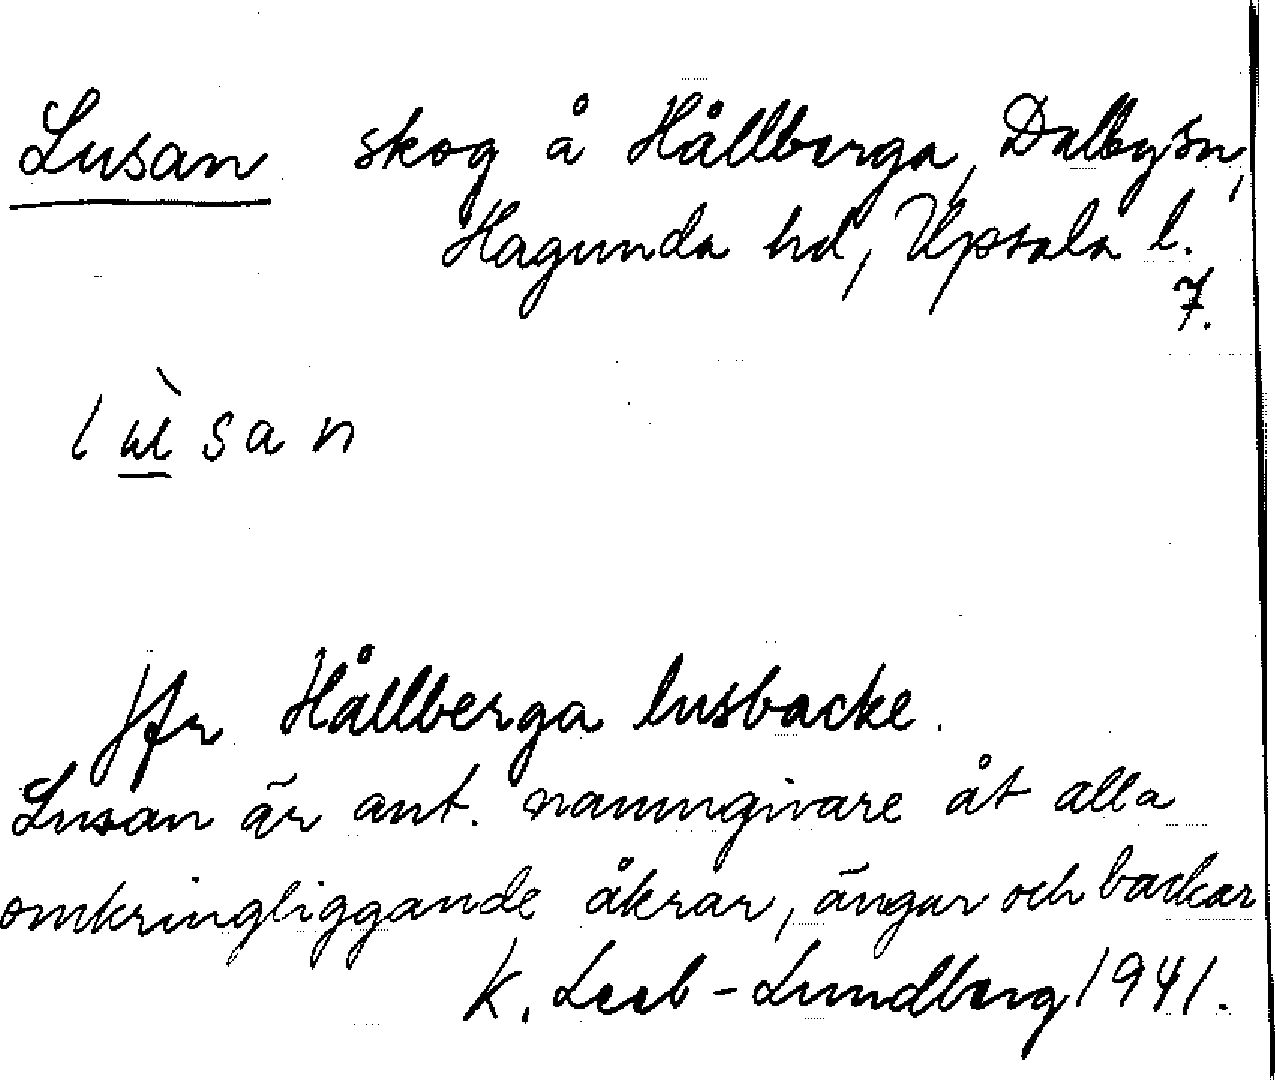 Lusan skog å Hållberga, Dalby sn,
Hagunda hd, Upsala l.
7.
lù̱san
Jfr Hållberga lusbacke.
Lusan är ant. namngivare åt alla
omkringliggande åkrar, ängar och backar
K. Leeb-Lundberg 1941.